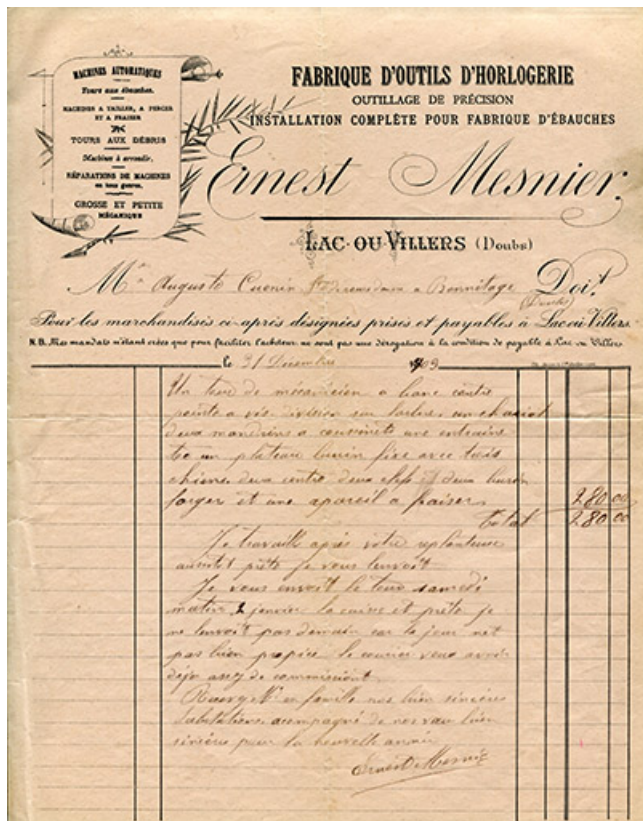 MACHINES AUTOMATIQUES
Tours aux ébauches.
MACHINES A TAILLER, A PERCER
ET A FRAISER
TOURS AUX DÉBRIS
Machines à arrondir.
RÉPARATIONS DE MACHINES
en tous genres.
GROSSE ET PETITE
MÉCANIQUE
FABRIQUE D'OUTILS D'HORLOGERIE
OUTILLAGE DE PRÉCISION
INSTALLATION COMPLÈTE POUR FABRIQUE D'ÉBAUCHES
Ernest Mesnier.
LAC-OU-VILLERS (Doubs)
M Auguste Cuenin a Bonnétage Doit
(Doubs)
Pour les marchandises ci-après désignées prises et payables à Lac ou Villers.
N.B. Mes mandats n'étant crées que pour faciliter l'acheteur ne sont pas une dérogation à la condition de payable à Lac ou Villers
le 31 Décembre 1909
Un tour de mécanicien a banc contre
pointe a vis division sur un chariot
deux mandrins a coussinets une
un plateau burin fixe avec trois
deux deux clefs et deux burin
forger et une apareil a fraiser 280.00
Total 280.00
Je travaille après votre
aussitôt prête je vous
Je vous envoit le tour samedi
matin 2 janvier la caisse et prête je
ne pas demain car le jour net
pas bien propice le courier veux avoir
déja assez de
M en famille nos bien sincères
acompagné de nos bien
sincères pour la nouvelle année
Ernest Mesnier